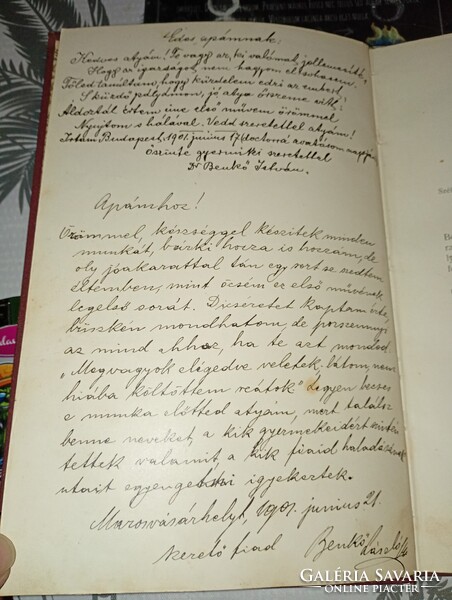 Édes apámnak.
Kedves atyám! Te vagy az, ki valómat jellemeztél,
Hogy az igazságot nem hagyom el sohasem.
Tőled tanultam, hogy küzdelem edzi az embert
S küzdő pályámon, jó atya őriszem
Áldoztál értem íme első művem örömmel
Nyujtom s hálával. Vedd szeretettel atyám!
Budapest, 1901. junius 17. doctorrá avatásom napján
Őszinte gyermeki szeretettel
Dr Benkő István.
Apámhoz!
Örömmel, készséggel készitek minden
munkát, bárki hozza is hozzám, de
oly jóakarattal tán egy sort se szedtem
életemben, mint öcsém ez első művének
legelső sorát. Dicséretet kaptam érte,
büszkén mondhatom, de porszemnyi
az mind ahhoz, ha te azt mondod
„Megvagyok elégedve veletek, látom, nem
hiába költöttem reátok" Legyen becses
e munka előtted atyám, mert találsz
benne neveket, a kik gyermekeidért
tettek valamit, a kik fiaid haladásának
utait egyengetni igyekeztek.
Marosvásárhelyt, 1901. junius 21.
szerető fiad Benkő László
GALÉRIA SAVARIA
ONLINE PIACTÉR